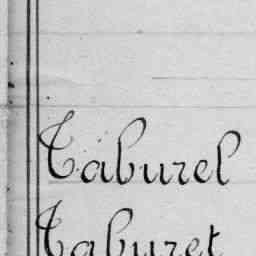 Taburel
Taburet